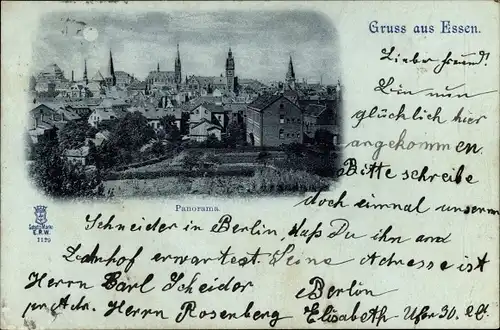 Gruss aus Essen.
Lieber Freund!
Bin nun
glücklich hier
angekommen.
Bitte schreibe
doch einmal unserm
Panorama.
Schutz-Marke
E.R.W.
1129
Schneider in Berlin, daß Du ihn am
Bahnhof erwartest. Seine Adresse ist
Herrn Carl Scheidor Berlin
pr Adr. Herrn Rosenberg Elisabeth-Ufer 30.